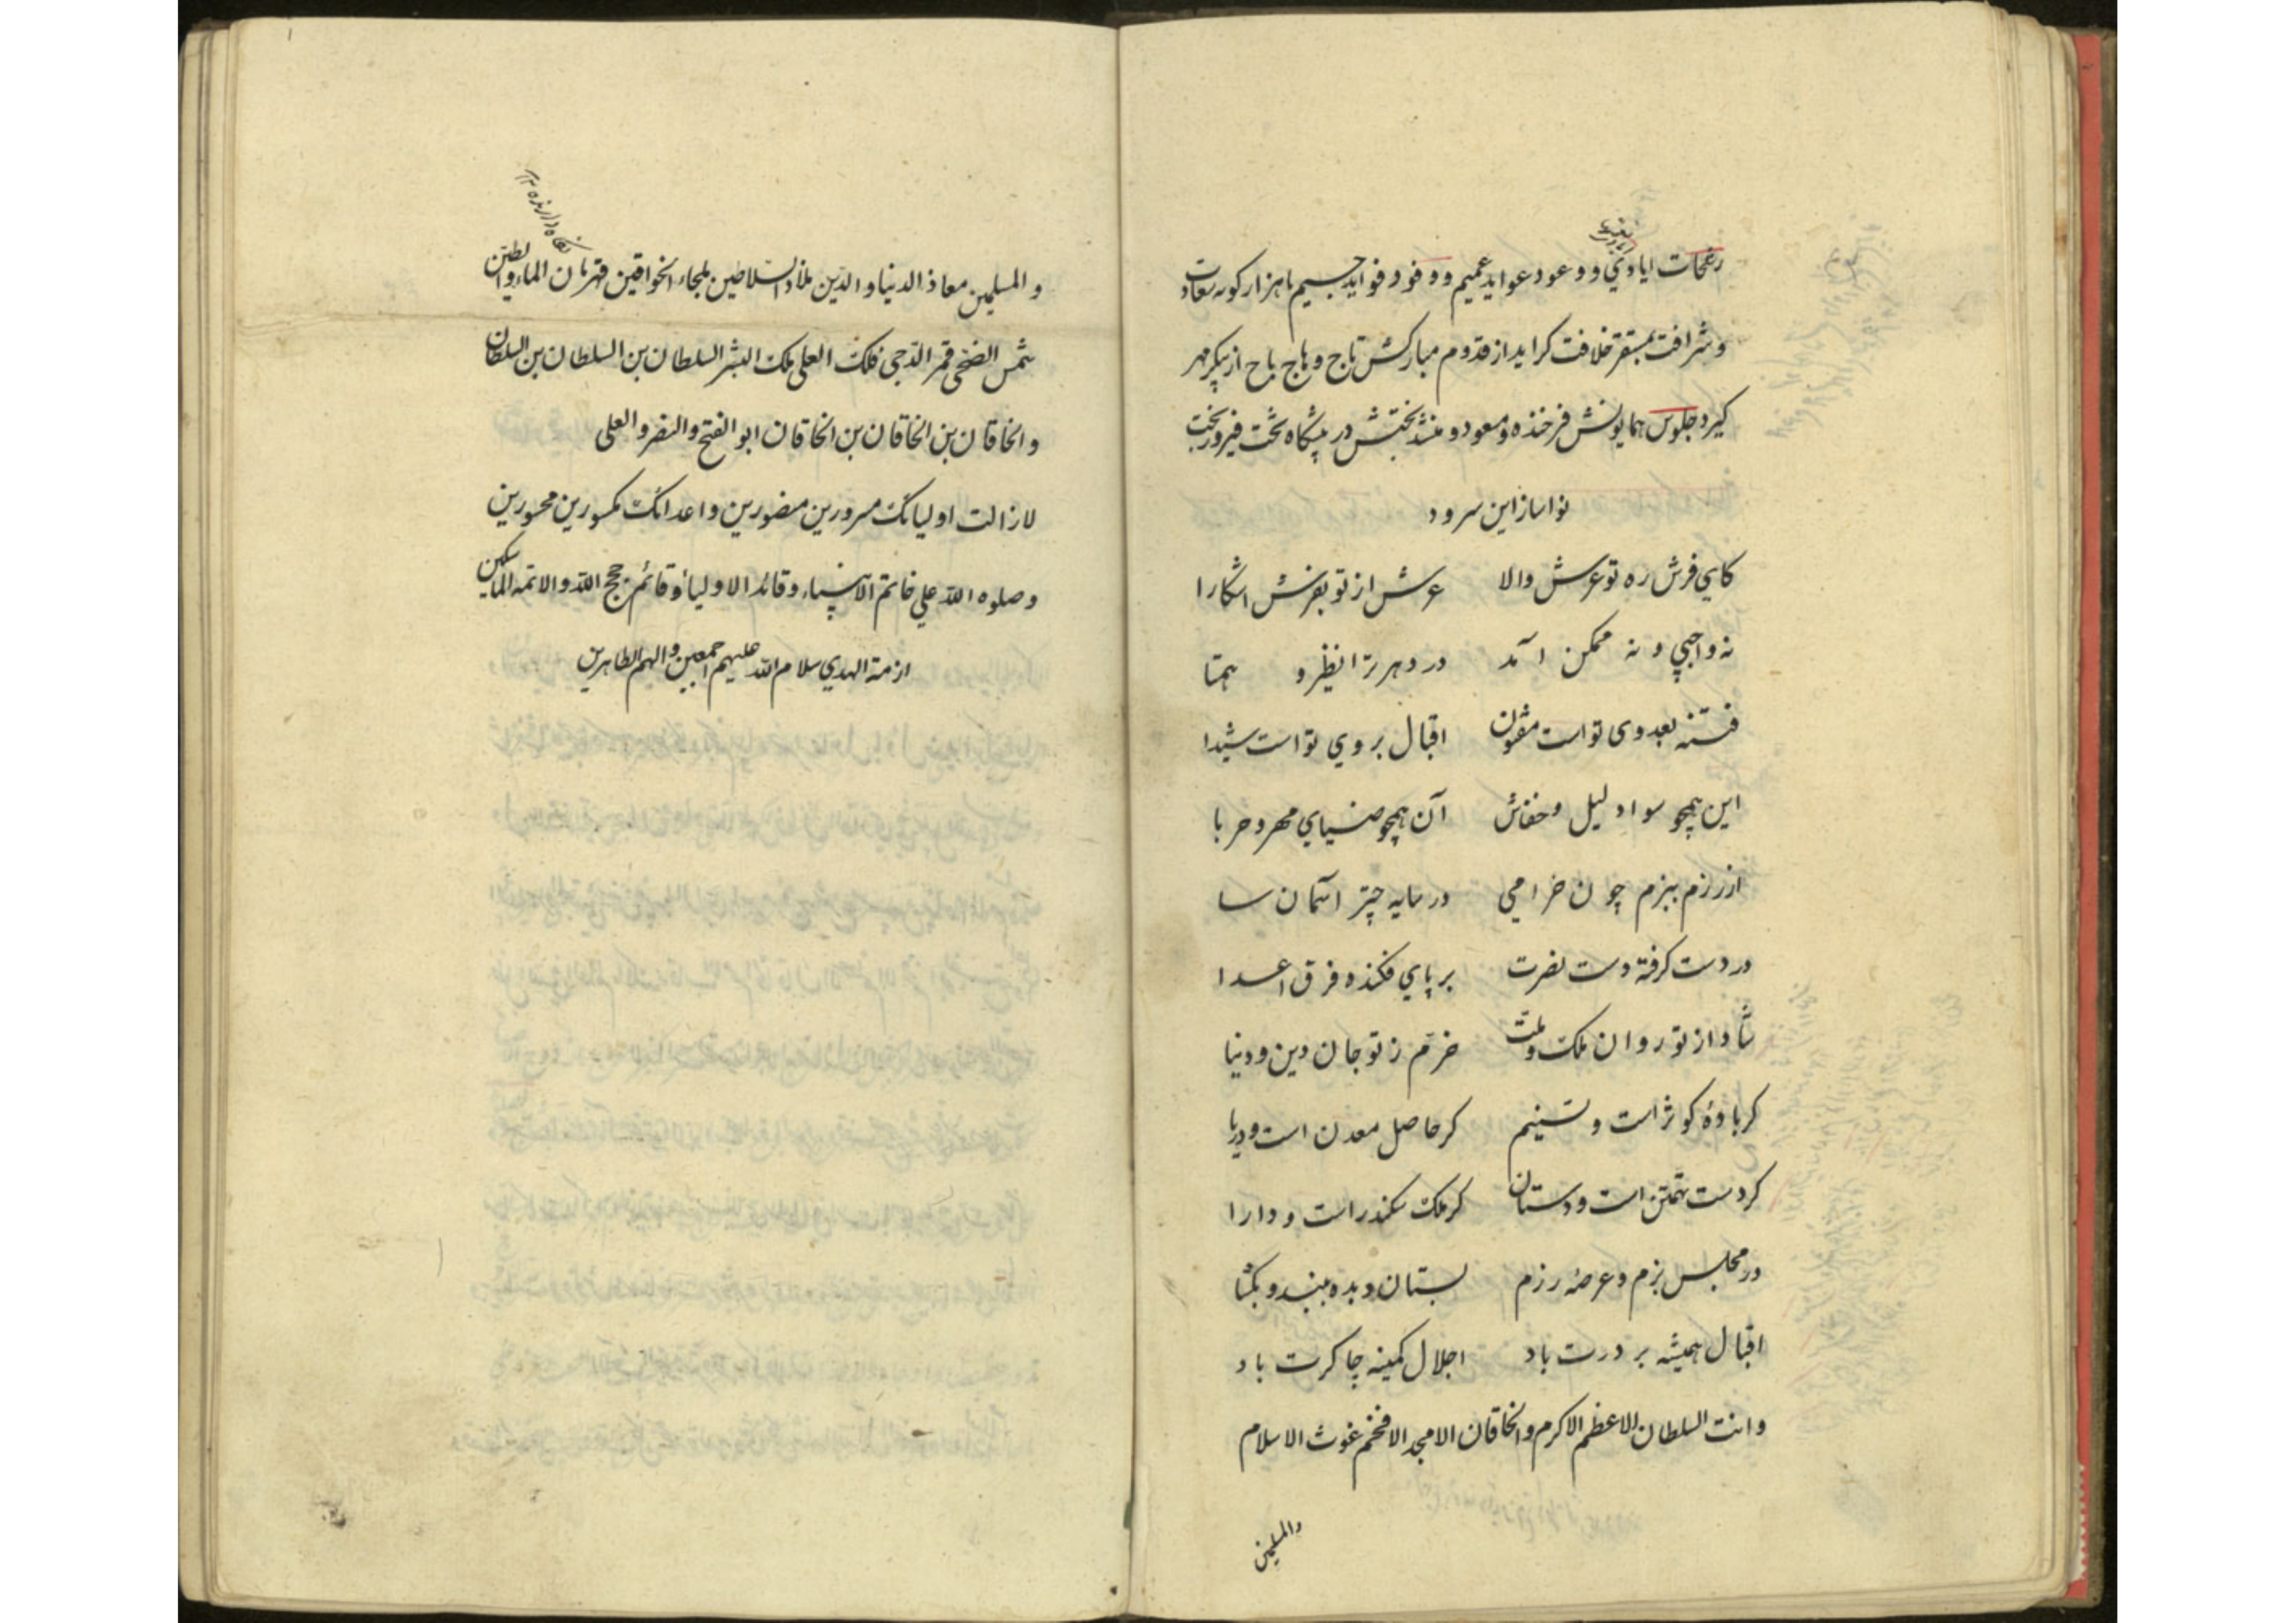 رغمات ایادی و وعود عواید عمیم و وفود فواید جسیم با هزار کونه سعادت
و شرافت بمستقر خلافت کراید از قدوم مبارکش تاج وهاج باج از پیکر مهر
کیرد جلوس همایونش فرخنده و مسعود و مسند بختش در پیشکاه تخت فیروزبخت
نواساز این سرود
کای فرش ره تو عرش والا عرش از تو بفرش اشکارا
نه واجبی و نه ممکن امد در دهر ترا نظیر و همتا
فتنه بعدوی تو است مفتون اقبال بروی تو است شیدا
این همچو سواد لیل و خفاش آن همچو ضیای مهر و حربا
از رزم ببزم چون خرامی در سایه چتر اسمان سا
در دست کرفته دست نصرت بر پای فکنده فرق اعدا
شاد از تو روان ملک و ملت خرم ز تو جان دین و دنیا
کر بادهٔ کوثر است و تسنیم کر حاصل معدن است و دریا
کر دست تهمتن است و دستان کر ملک سکندر است و دارا
در مجلس بزم و عرصه رزم بستان و بده ببند و بکشا
اقبال همیشه بر درت باد اجلال کمینه چاکرت باد
وانت السلطان الاعظم الاکرم والخاقان الامجد الافخم غوث الاسلام
والمسلمین
و المسلمین معاذ الدنیا و الدین ملاذ السلاطین ملجاء الخواقین قهرمان الماء والطین
شمس الضحی قمر الدجی فلک العلی ملک البشر السلطان بن السلطان بن السلطان
و الخاقان بن الخاقان بن الخاقان ابو الفتح و النصر و العلی
لازالت اولیائک مسرورین منصورین و اعدائک مکسورین محسورین
و صلوه الله علی خاتم الانبیاء و قائد الاولیاء و قائم حجج الله و الائمه
ازمة الهدی سلام الله علیهم اجمعین و الهم الطاهرین